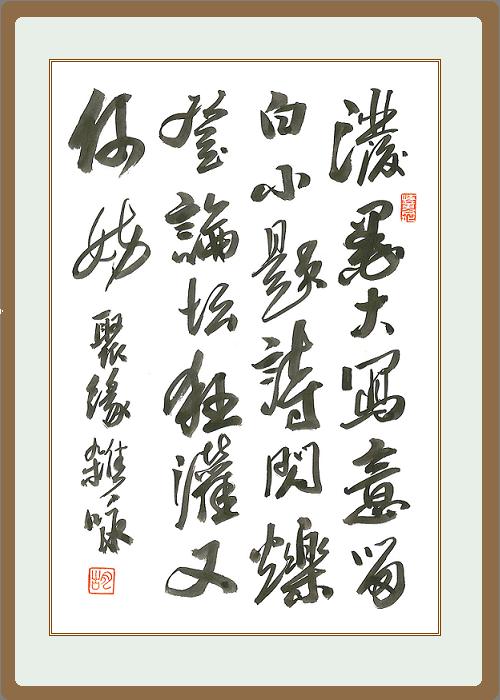 濃墨大寫意留
白小題詩閃爍
登論坛狂灌又
何妨
聚緣雜咏